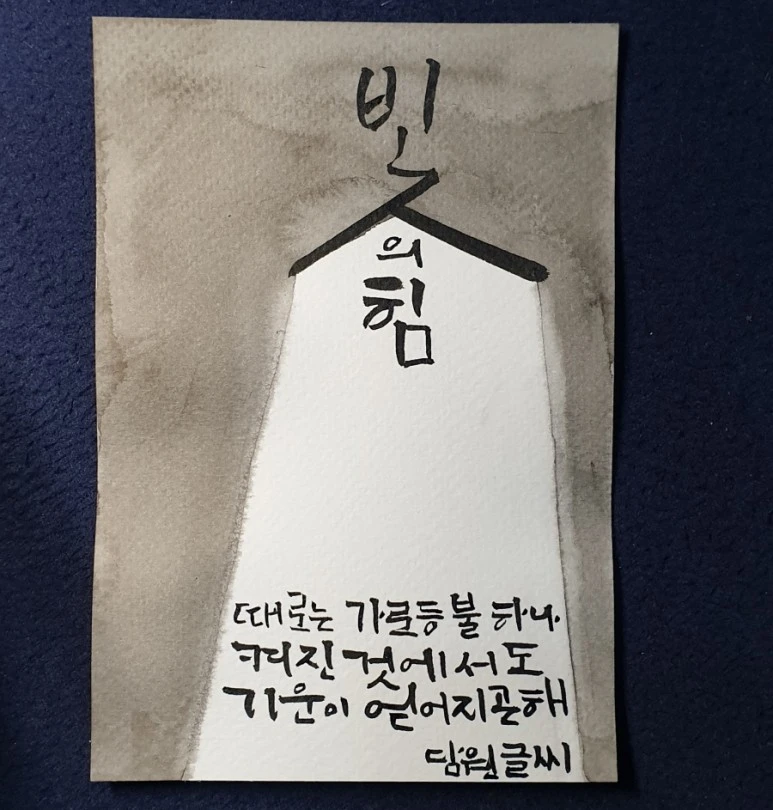 빛
의
힘
때로는 가로등 불 하나
켜진 것에서도
기운이 얻어지곤 해
담원글씨